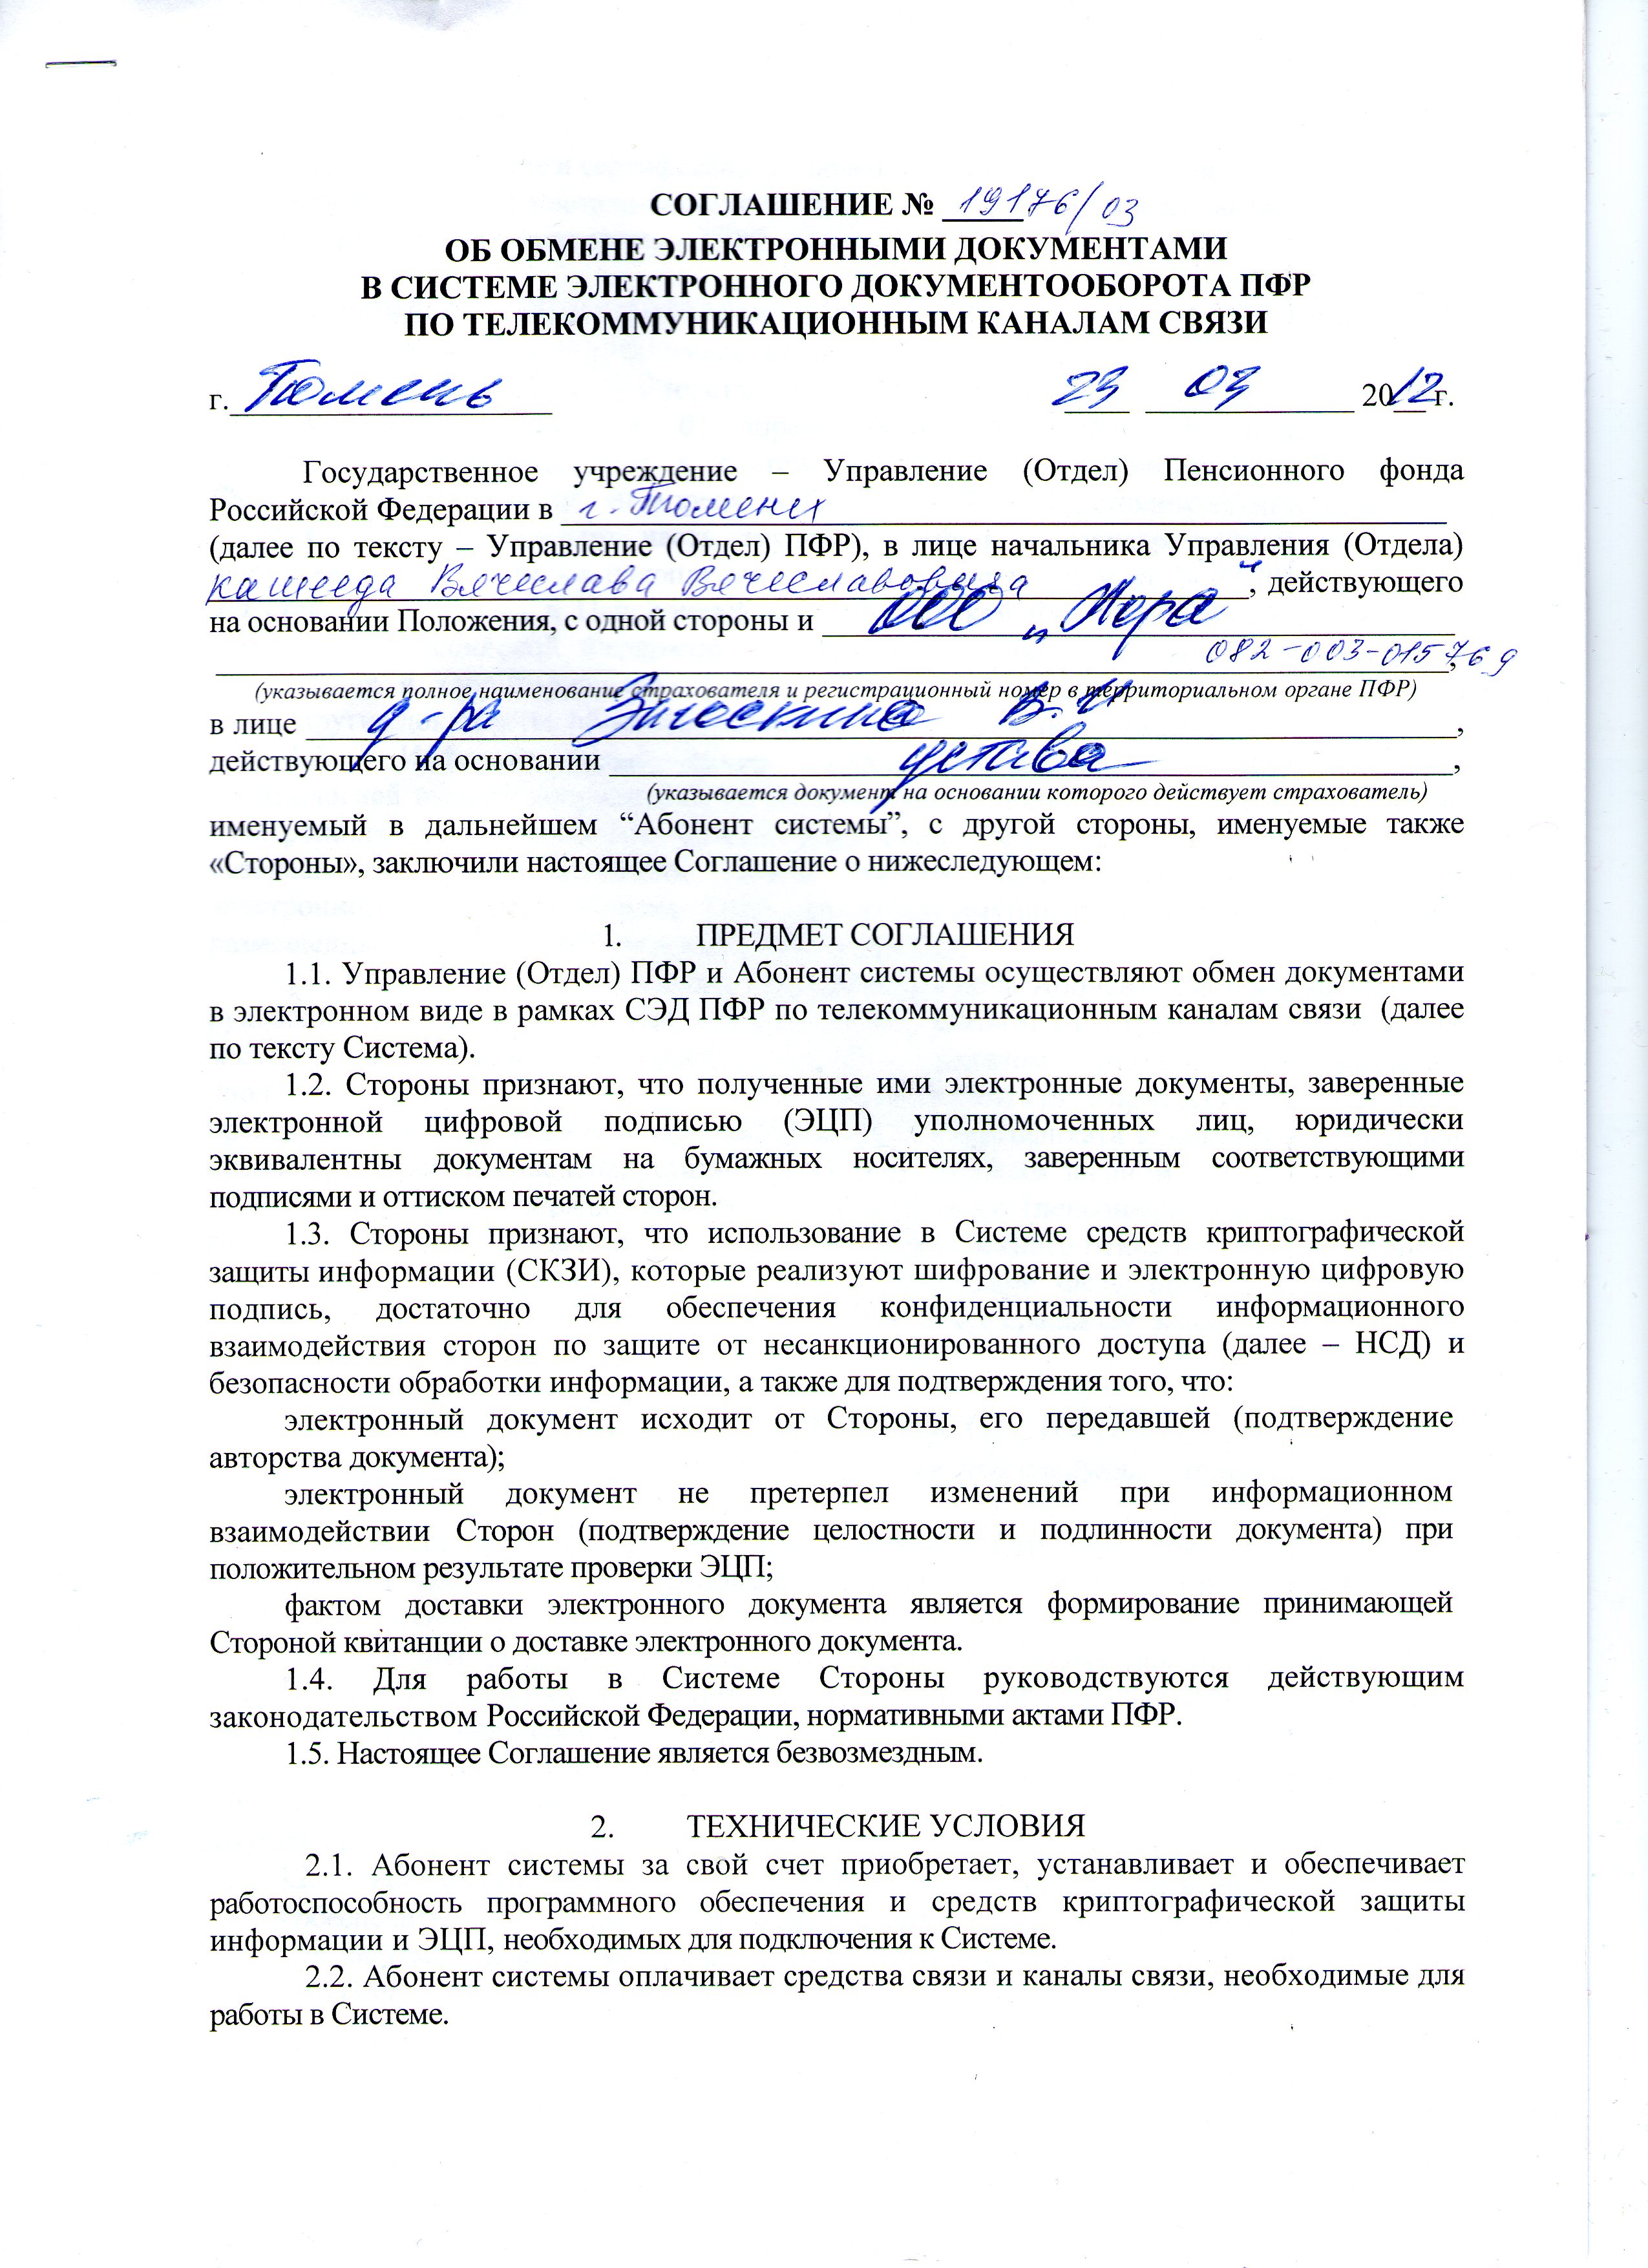 СОГЛАШЕНИЕ № 19176/03
ОБ ОБМЕНЕ ЭЛЕКТРОННЫМИ ДОКУМЕНТАМИ
В СИСТЕМЕ ЭЛЕКТРОННОГО ДОКУМЕНТООБОРОТА ПФР
ПО ТЕЛЕКОММУНИКАЦИОННЫМ КАНАЛАМ СВЯЗИ
г. Тюмень 23 03 2012 г.
Государственное учреждение – Управление (Отдел) Пенсионного фонда
Российской Федерации в г. Тюмени
(далее по тексту – Управление (Отдел) ПФР), в лице начальника Управления (Отдела)
Вячеслава Вячеславовича, действующего
на основании Положения, с одной стороны и ООО „Мора“
082-003-015769,
(указывается полное наименование страхователя и регистрационный номер в территориальном органе ПФР)
в лице д-ра В.И,
действующего на основании устава,
(указывается документ на основании которого действует страхователь)
именуемый в дальнейшем “Абонент системы”, с другой стороны, именуемые также
«Стороны», заключили настоящее Соглашение о нижеследующем:
1. ПРЕДМЕТ СОГЛАШЕНИЯ
1.1. Управление (Отдел) ПФР и Абонент системы осуществляют обмен документами
в электронном виде в рамках СЭД ПФР по телекоммуникационным каналам связи (далее
по тексту Система).
1.2. Стороны признают, что полученные ими электронные документы, заверенные
электронной цифровой подписью (ЭЦП) уполномоченных лиц, юридически
эквивалентны документам на бумажных носителях, заверенным соответствующими
подписями и оттиском печатей сторон.
1.3. Стороны признают, что использование в Системе средств криптографической
защиты информации (СКЗИ), которые реализуют шифрование и электронную цифровую
подпись, достаточно для обеспечения конфиденциальности информационного
взаимодействия сторон по защите от несанкционированного доступа (далее – НСД) и
безопасности обработки информации, а также для подтверждения того, что:
электронный документ исходит от Стороны, его передавшей (подтверждение
авторства документа);
электронный документ не претерпел изменений при информационном
взаимодействии Сторон (подтверждение целостности и подлинности документа) при
положительном результате проверки ЭЦП;
фактом доставки электронного документа является формирование принимающей
Стороной квитанции о доставке электронного документа.
1.4. Для работы в Системе Стороны руководствуются действующим
законодательством Российской Федерации, нормативными актами ПФР.
1.5. Настоящее Соглашение является безвозмездным.
2. ТЕХНИЧЕСКИЕ УСЛОВИЯ
2.1. Абонент системы за свой счет приобретает, устанавливает и обеспечивает
работоспособность программного обеспечения и средств криптографической защиты
информации и ЭЦП, необходимых для подключения к Системе.
2.2. Абонент системы оплачивает средства связи и каналы связи, необходимые для
работы в Системе.